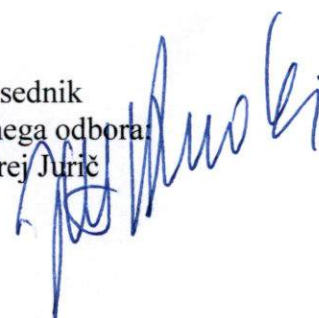 sednik
nega odbora:
rej Jurič